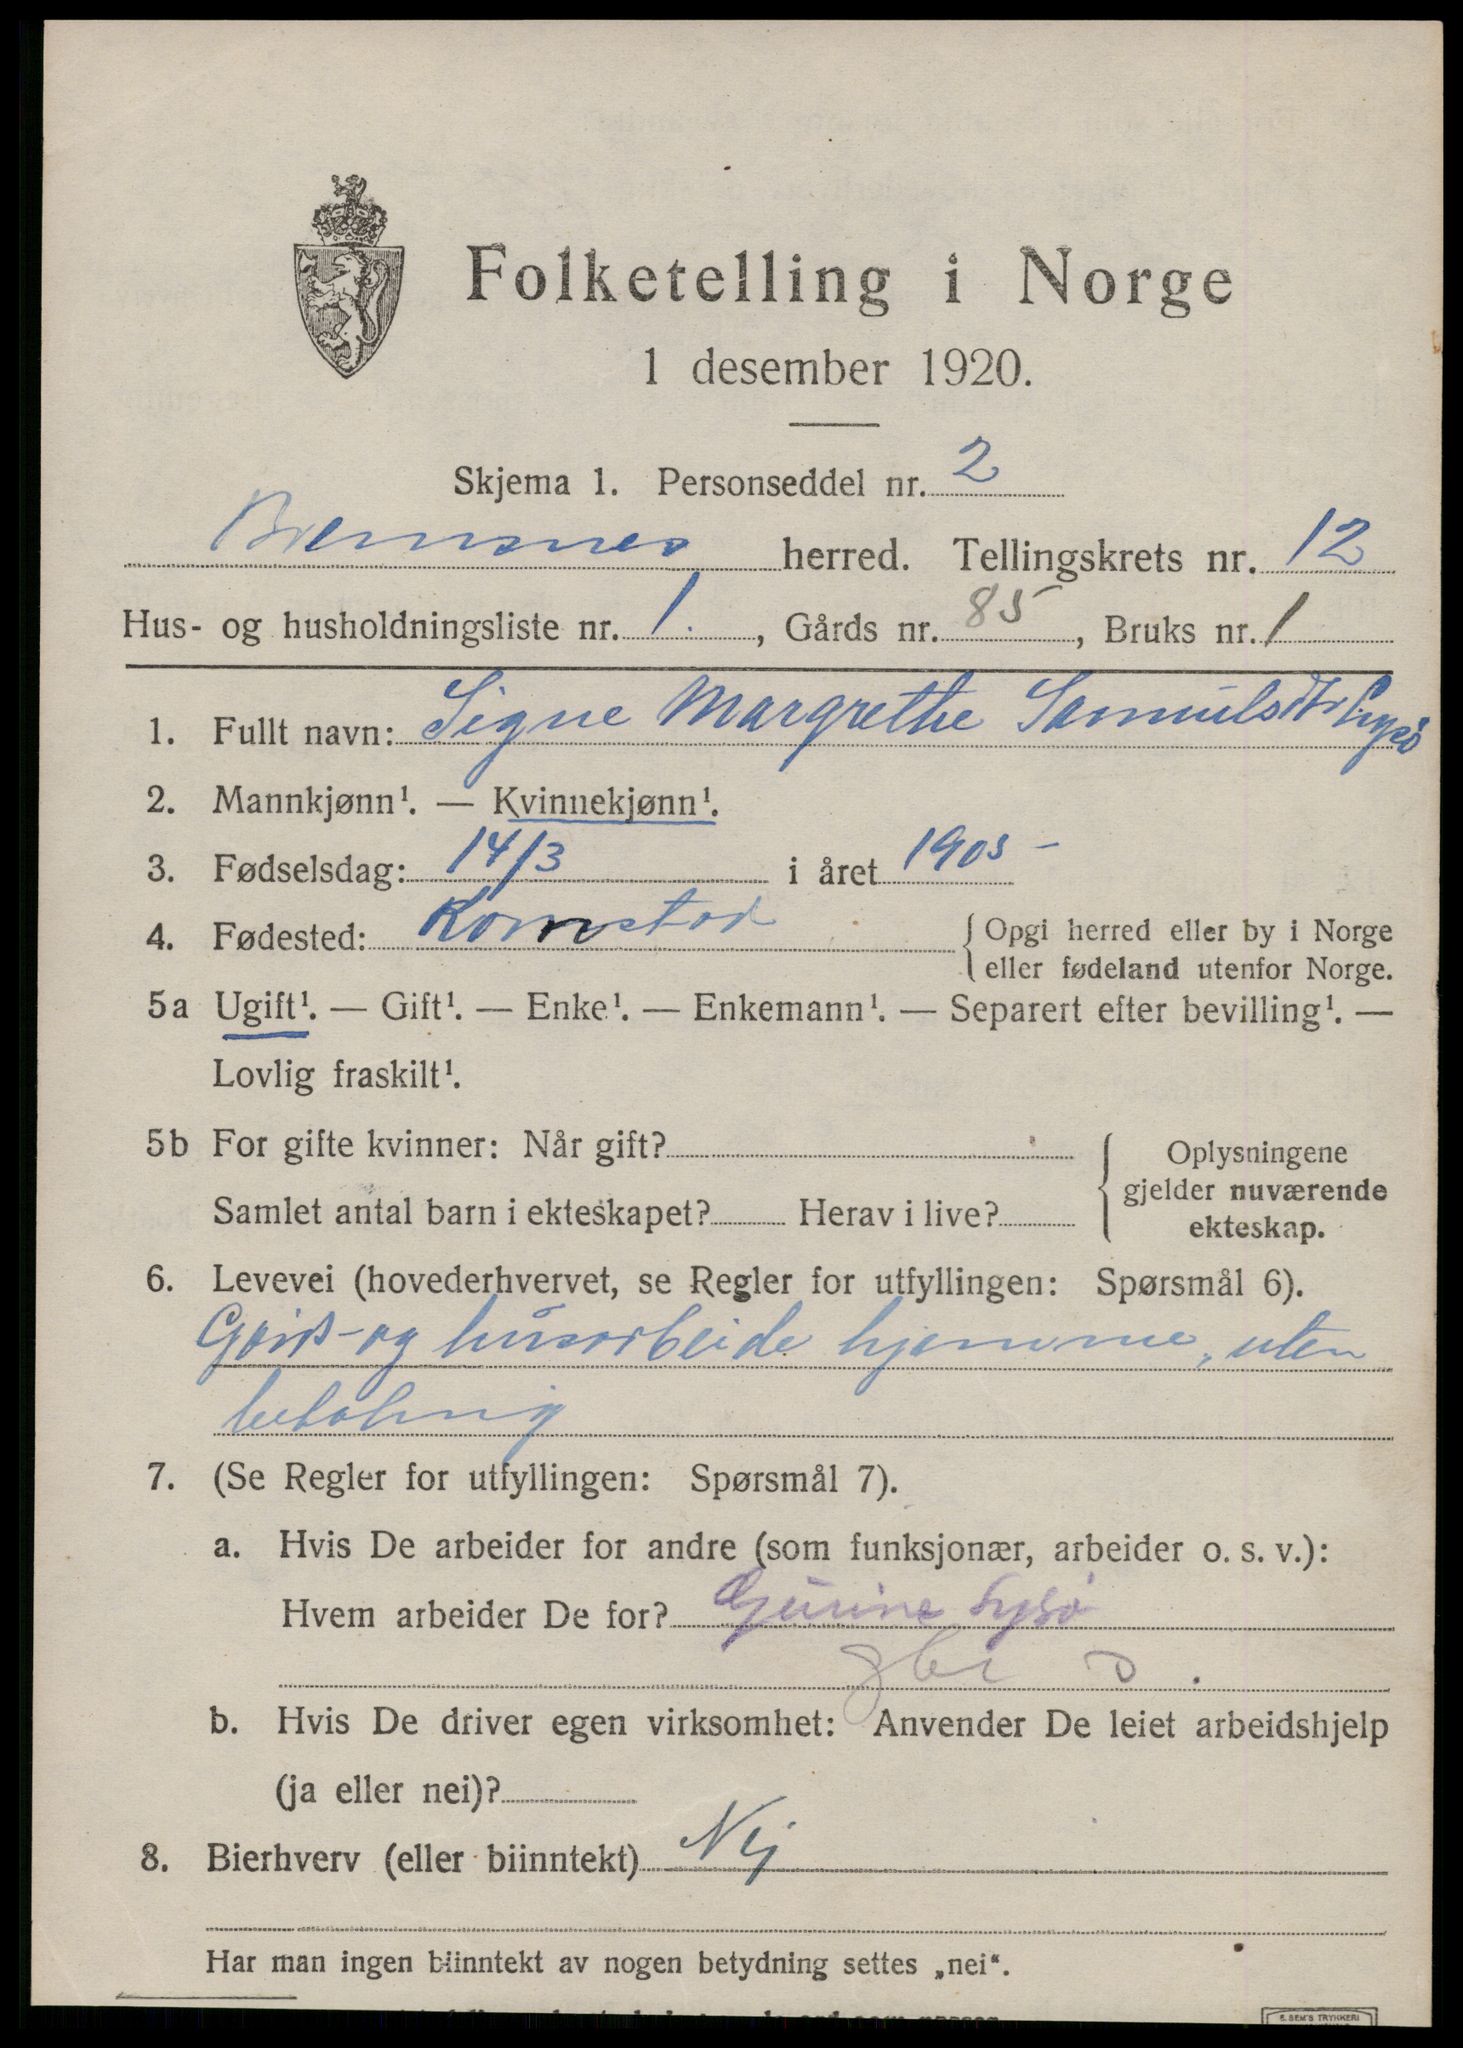 Folketelling i Norge
1 desember 1920.
Skjema 1. Personseddel nr. 2
Bremsnes herred. Tellingskrets nr. 12
Hus- og husholdningsliste nr. 1. , Gårds nr. 85 , Bruks nr. 1
1. Fullt navn: Signe Margrethe Samuelsdtr Lysø
2. Mannkjønn¹. — Kvinnekjønn¹.
3. Fødselsdag: 14/3 i året 1905 -
4. Fødested: Kornstad { Opgi herred eller by i Norge
eller fødeland utenfor Norge.
5a Ugift¹. — Gift¹. — Enke¹. — Enkemann¹. — Separert efter bevilling¹. —
Lovlig fraskilt¹.
5b For gifte kvinner: Når gift?
Samlet antal barn i ekteskapet? Herav i live?
{ Oplysningene
gjelder nuværende
ekteskap.
6. Levevei (hovederhvervet, se Regler for utfyllingen: Spørsmål 6).
Gårds- og husarbeide hjemme, uten
betaling
7. (Se Regler for utfyllingen: Spørsmål 7).
a. Hvis De arbeider for andre (som funksjonær, arbeider o. s. v.):
Hvem arbeider De for? Gurine Lysø
gbr
b. Hvis De driver egen virksomhet: Anvender De leiet arbeidshjelp
(ja eller nei)?
8. Bierhverv (eller biinntekt) Nej
Har man ingen biinntekt av nogen betydning settes „nei“.
E. SEM'S TRYKKERI